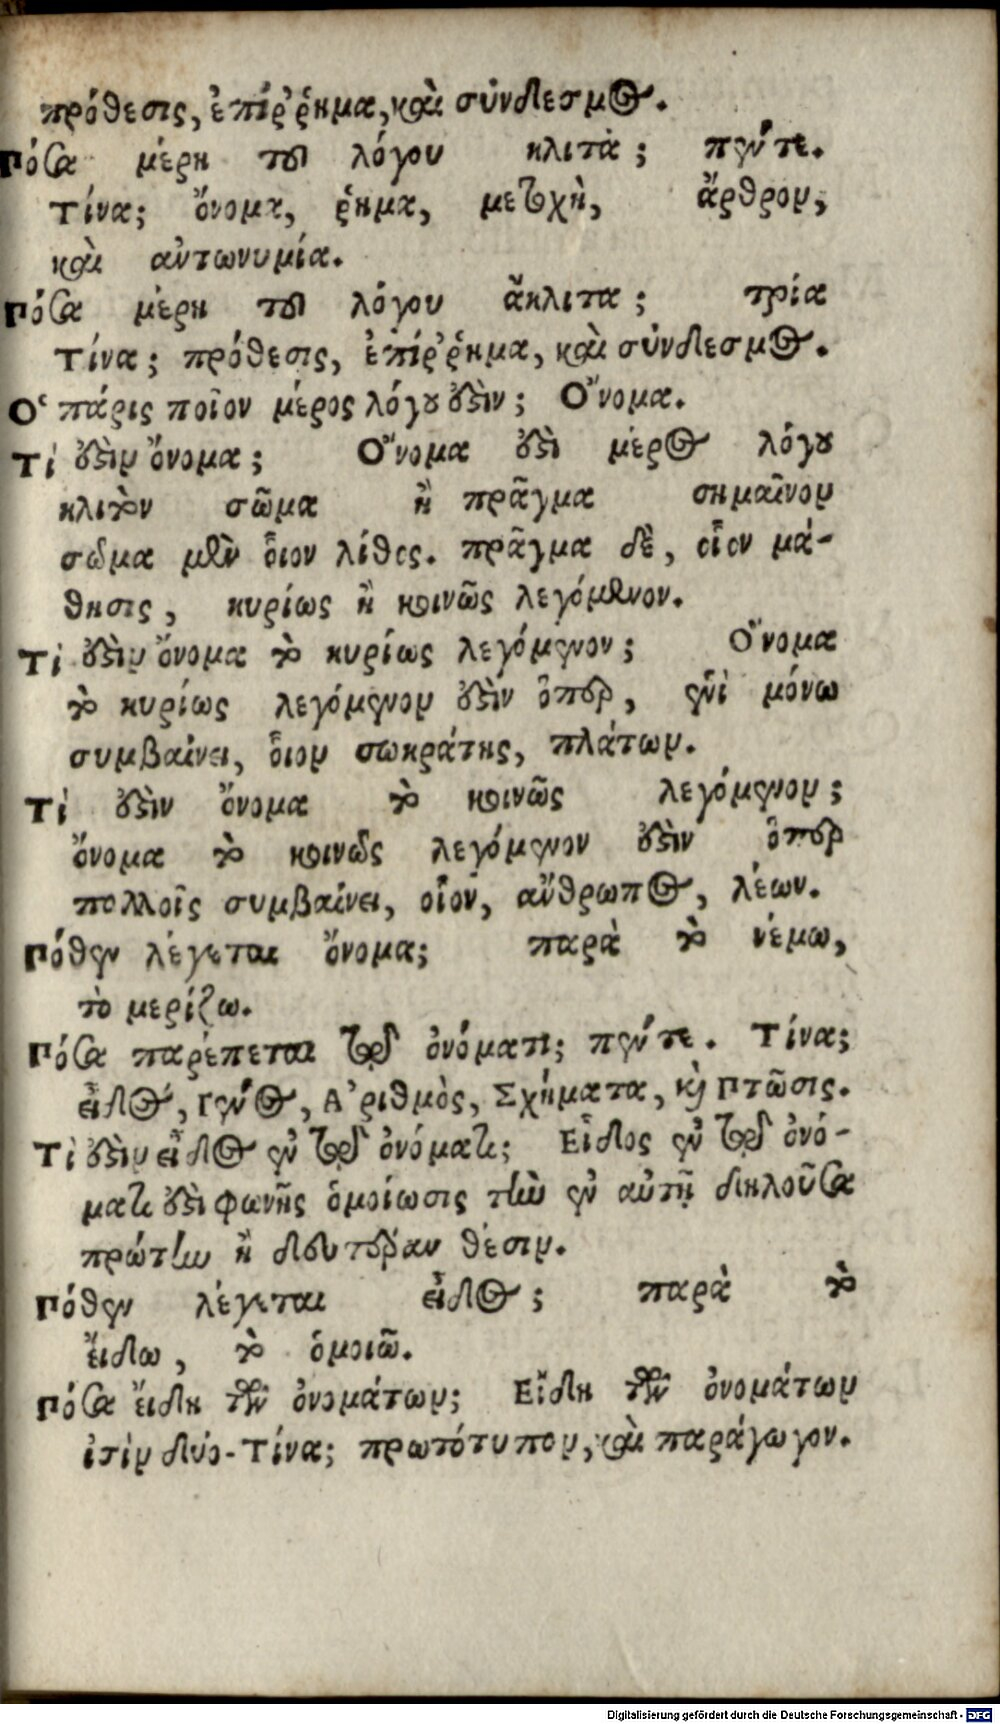 πρόθεσις, ἐπίῤῥημα, καὶ σύνδεσμος.
Πόσα μέρη τοῦ λόγου κλιτά; πέντε.
Τίνα; ὄνομα, ῥῆμα, μετοχὴ, ἄρθρον,
καὶ αὐτωνυμία.
Πόσα μέρη τοῦ λόγου ἄκλιτα; τρία
Τίνα; πρόθεσις, ἐπίῤῥημα, καὶ σύνδεσμος.
Ὁ πάρις ποῖον μέρος λόγου ἐστὶν; Ὄνομα.
Τί ἐστὶν ὄνομα; Ὄνομα ἐστὶ μέρος λόγου
κλιτὸν σῶμα ἢ πρᾶγμα σημαῖνον
σῶμα μὲν ὅιον λίθος. πρᾶγμα δὲ, οἷον μά-
θησις, κυρίως ἢ κοινῶς λεγόμενον.
Τί ἐστὶν ὄνομα τὸ κυρίως λεγόμενον; Ὄνομα
τὸ κυρίως λεγόμενον ἐστὶν ὅπερ, ἑνὶ μόνω
συμβαίνει, ὅιον σωκράτης, πλάτων.
Τί ἐστὶν ὄνομα τὸ κοινῶς λεγόμενον;
ὄνομα τὸ κοινῶς λεγόμενον ἐστὶν ὅπερ
πολλοῖς συμβαίνει, οἷον, ἄνθρωπος, λέων.
Πόθεν λέγεται ὄνομα; παρὰ τὸ νέμω,
τὸ μερίζω.
Πόσα παρέπεται τῷ ὀνόματι; πέντε. Τίνα;
εἶδος, Γένος, Ἀριθμὸς, Σχήματα, καὶ Πτῶσις.
Τί ἐστὶν εἶδος ἐν τῷ ὀνόματι; Εἶδος ἐν τῷ ὀνό-
ματι ἐστὶ φωνῆς ὁμοίωσις τὴν ἐν αὐτῇ δηλοῦσα
πρώτην ἢ δευτέραν θέσιν.
Πόθεν λέγεται εἶδος; παρὰ τὸ
ἔιδω, τὸ ὁμοιῶ.
Πόσα ἔιδη τῶν ὀνομάτων; Εἴδη τῶν ὀνομάτων
ἐστὶν δύο. Τίνα; πρωτότυπον, καὶ παράγωγον.
Digitalisierung gefördert durch die Deutsche Forschungsgemeinschaft - DFG